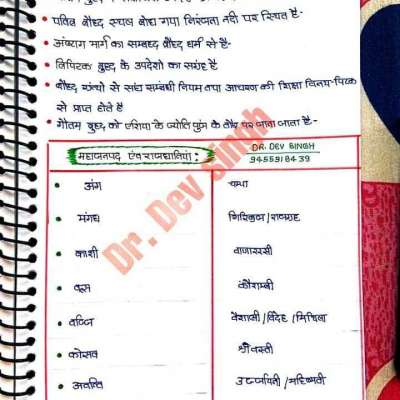 • पवित्र बौध्द स्थल बोध गया निरंजना नदी पर स्थित है-
• अष्टांग मार्ग का सम्बन्ध बौध्द धर्म से है-
• त्रिपिटक बुध्द के उपदेशो का सग्रंह है-
• बौध्द ग्रंन्थो से संघ सम्बंधी नियम तथा आचरण की शिक्षा विनय-पिटक
से प्राप्त होते है
• गौतम बुध्द को एशिया के ज्योति पुंज के तौर पर जाना जाता है-
महाजनपद एंव राजधानियां : DR. DEV SINGH
9455918439
• अंग चम्पा
• मंगध गिरिब्रज/राजग्रह
• काशी वाराणसी
• वत्स कौशाम्बी
• वज्जि वैशाली/विदेह/मिथिला
• कोसल श्रीवस्ती
• अवन्ति उज्जयिनी/महिष्मती
Dr. Dev Singh